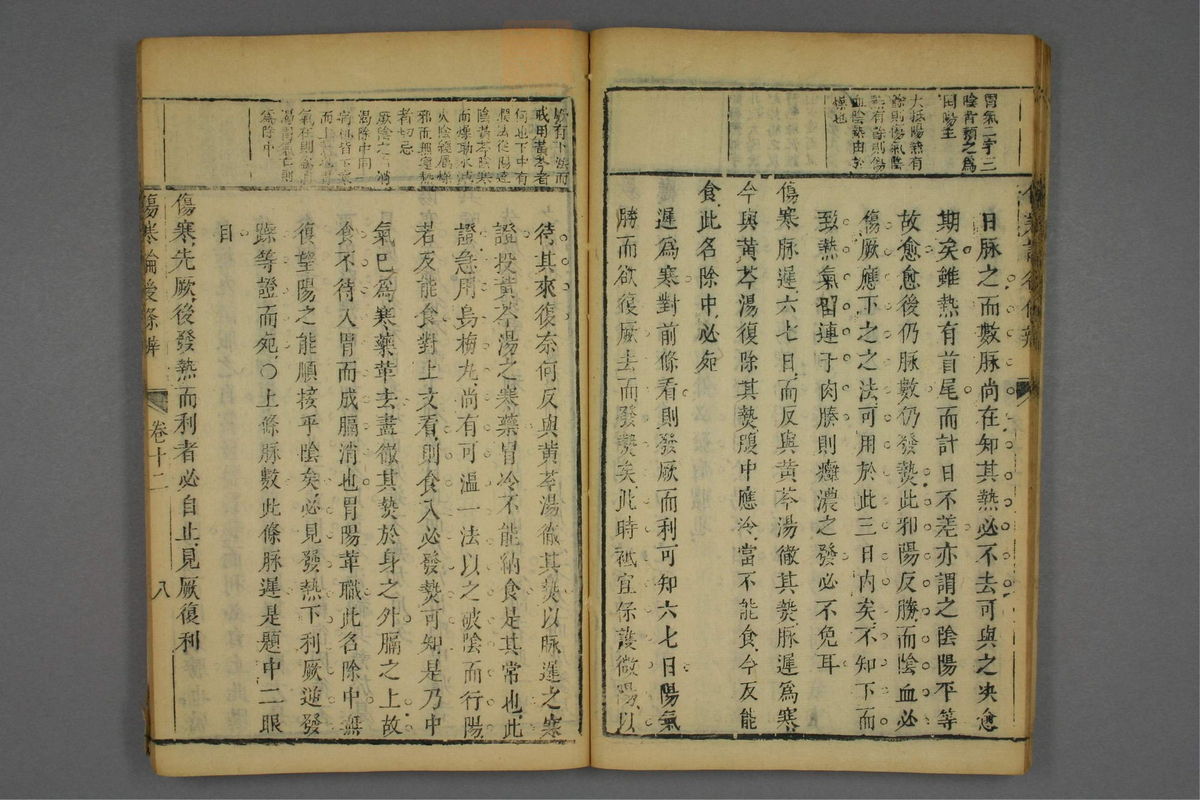 胃氣二字三
陰背頼之為
回陽主
大抵陽熱有
餘則傷氣陰
熱有餘則傷
血陰熱由
日脉之而數脉尚在知其熱必不去可與之决愈
期矣雖熱有首尾而計日不差亦謂之陰陽平等
故愈愈後仍脉數仍發𤍠此邪陽反勝而陰血必
傷厥應下之之法可用於此三日内矣不知下而
致熱氣留連于肉腠則癰濃之發必不免耳
傷寒脉遲六七日而反與黄芩湯徹其𤍠脉遲爲寒
今與黄芩湯復除其𤍠腹中應冷當不能食今反能
食此名除中必死
遲爲寒對前條看則發厥而利可知六七日陽氣
勝而欲復厥去而發𤍠矣此時祗宜保護微陽以
厥有下法而
戒用黄芩者
何也下中有
陰黄芩陰寒
邪而興虚熱
者切忌
氣在則為消
渴胃氣亡則
為除中
待其來復奈何反與黄芩湯徹其𤍠以脉遲之寒
證投黄芩湯之寒藥胃冷不能納食是其常也此
證急用烏梅丸尚有可温一法以之破陰而行陽
若反能食對上文看則食入必發𤍠可知是乃中
氣已爲寒藥革去盡徹其𤍠於身之外膈之上故
食不待入胃而成膈消也胃陽革職此名除中無
復望陽之能順接乎陰矣必見發熱下利厥逆發
躁等證而死○上條脉數此條脉遲是題中二眼
目
傷寒先厥後發熱而利者必自止見厥復利
傷寒論後條辨
卷十二
八